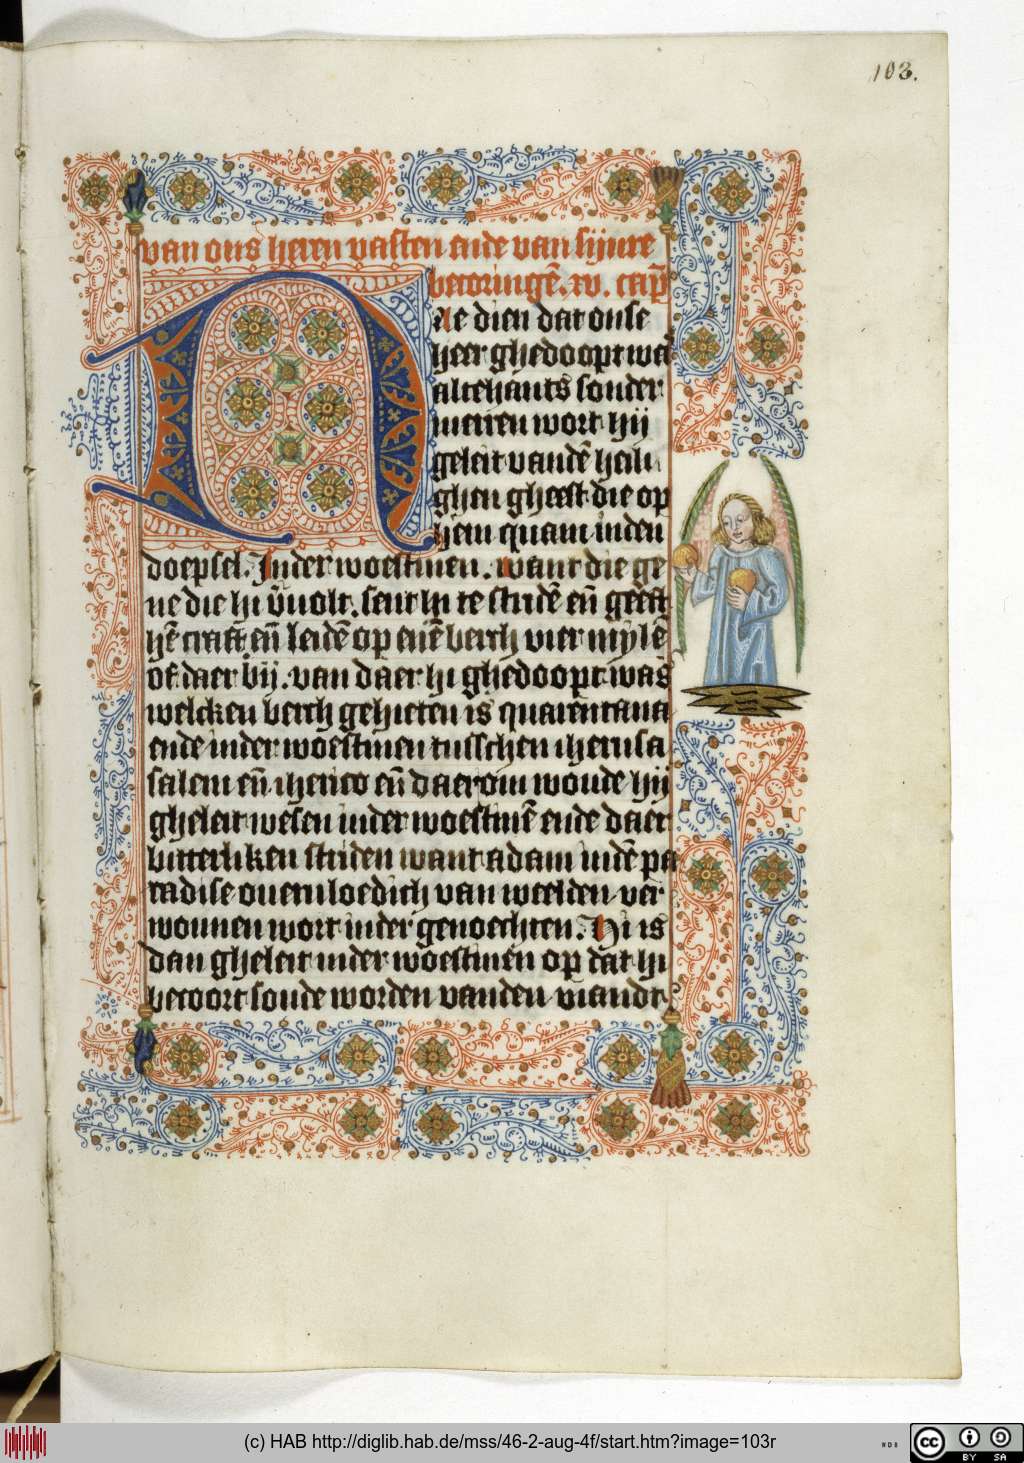 103.
van ons heren vasten ende van sijnre
becoringē. xv. cap̄
Nae dien dat onse
heer ghedoopt was
altehants sonder
merren wort hij
geleit vandē heili
ghen gheest die op
hem quam inden
doepsel. Inder woestinen. want die ge
ne die hi v̄uolt. sent hi te stridē eñ geeft
hē craft eñ leidē op enē berch vier mylē
of daer bij. van daer hi ghedoopt was
welcken berch geheten is quarentana
ende inder woestinen tusschen iherusa
salem eñ iherico eñ daerom woude hij
gheleit wesen inder woestinē ende daer
bitterliken striden want adam indē pa
radise overuloedich van weelden ver
wonnen wort inder genoechten. Hi is
dan gheleit inder woestinen op dat hi
becoort soude worden vanden viandt
(c) HAB http://diglib.hab.de/mss/46-2-aug-4f/start.htm?image=103r
WDB
cc BY SA